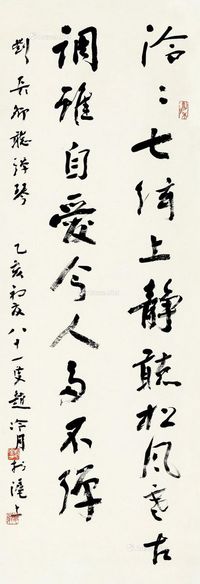 泠〻七絃上靜聽松风寒古
调雖自愛今人多不彈
劉長卿聽弹琴 乙亥初夏八十一叟趙冷月於滬上